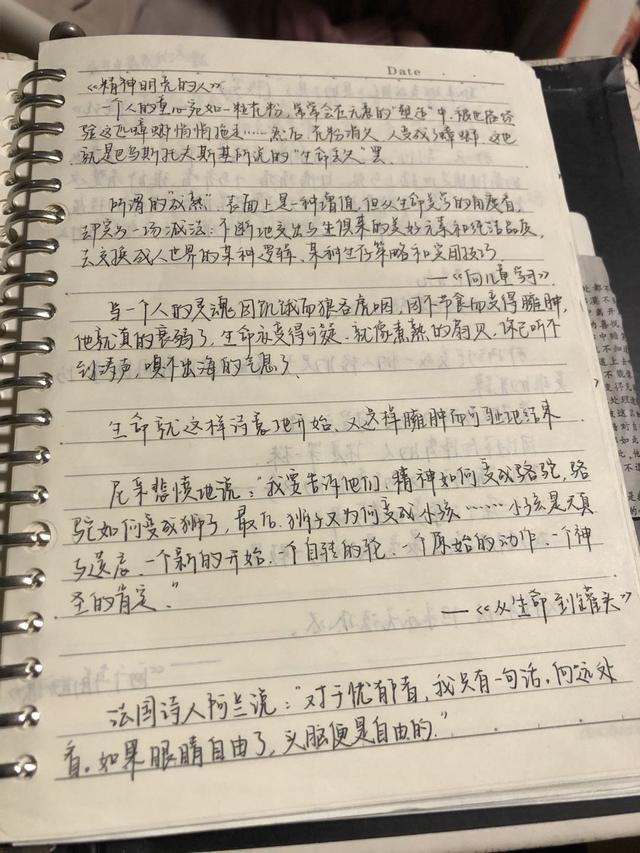 Date
《精神明亮的人》
一个人的童心宛如一粒花粉，常常会在无意的"塑造"中，被世
这匹蟑螂悄悄拖走……然后，花粉消失，人变成了蟑螂。这也
就是巴乌斯托夫斯基所说的"生命丢失"罢
所谓的"成熟"，表面上是一种增值，但从生命美学的角度看，
却实为一场减法：不断地交出与生俱来的美好元素和纯洁品质，
去交换成人世界的某种逻辑、某种生存策略和实用技巧
——《向儿童学习》
当一个人的灵魂因饥饿而狼吞虎咽，因不节食而变得臃肿，
他就真的衰弱了，生命亦变得可疑、就像煮熟的扇贝，你已听不
到涛声，嗅不出海的气息了
生命就这样诗意地开始、又这样臃肿而可耻地结束
尼采悲愤地说："我要告诉他们，精神如何变成骆驼，骆
驼如何变成狮子，最后，狮子又为何变成小孩……小孩是天真
与遗忘、一个新的开始、一个自转的轮、一个原始的动作、一个神
圣的肯定。"
——《从生命到罐头》
法国诗人阿兰说："对于忧郁者，我只有一句话，向远处
看。如果眼睛自由了，头脑便是自由的."